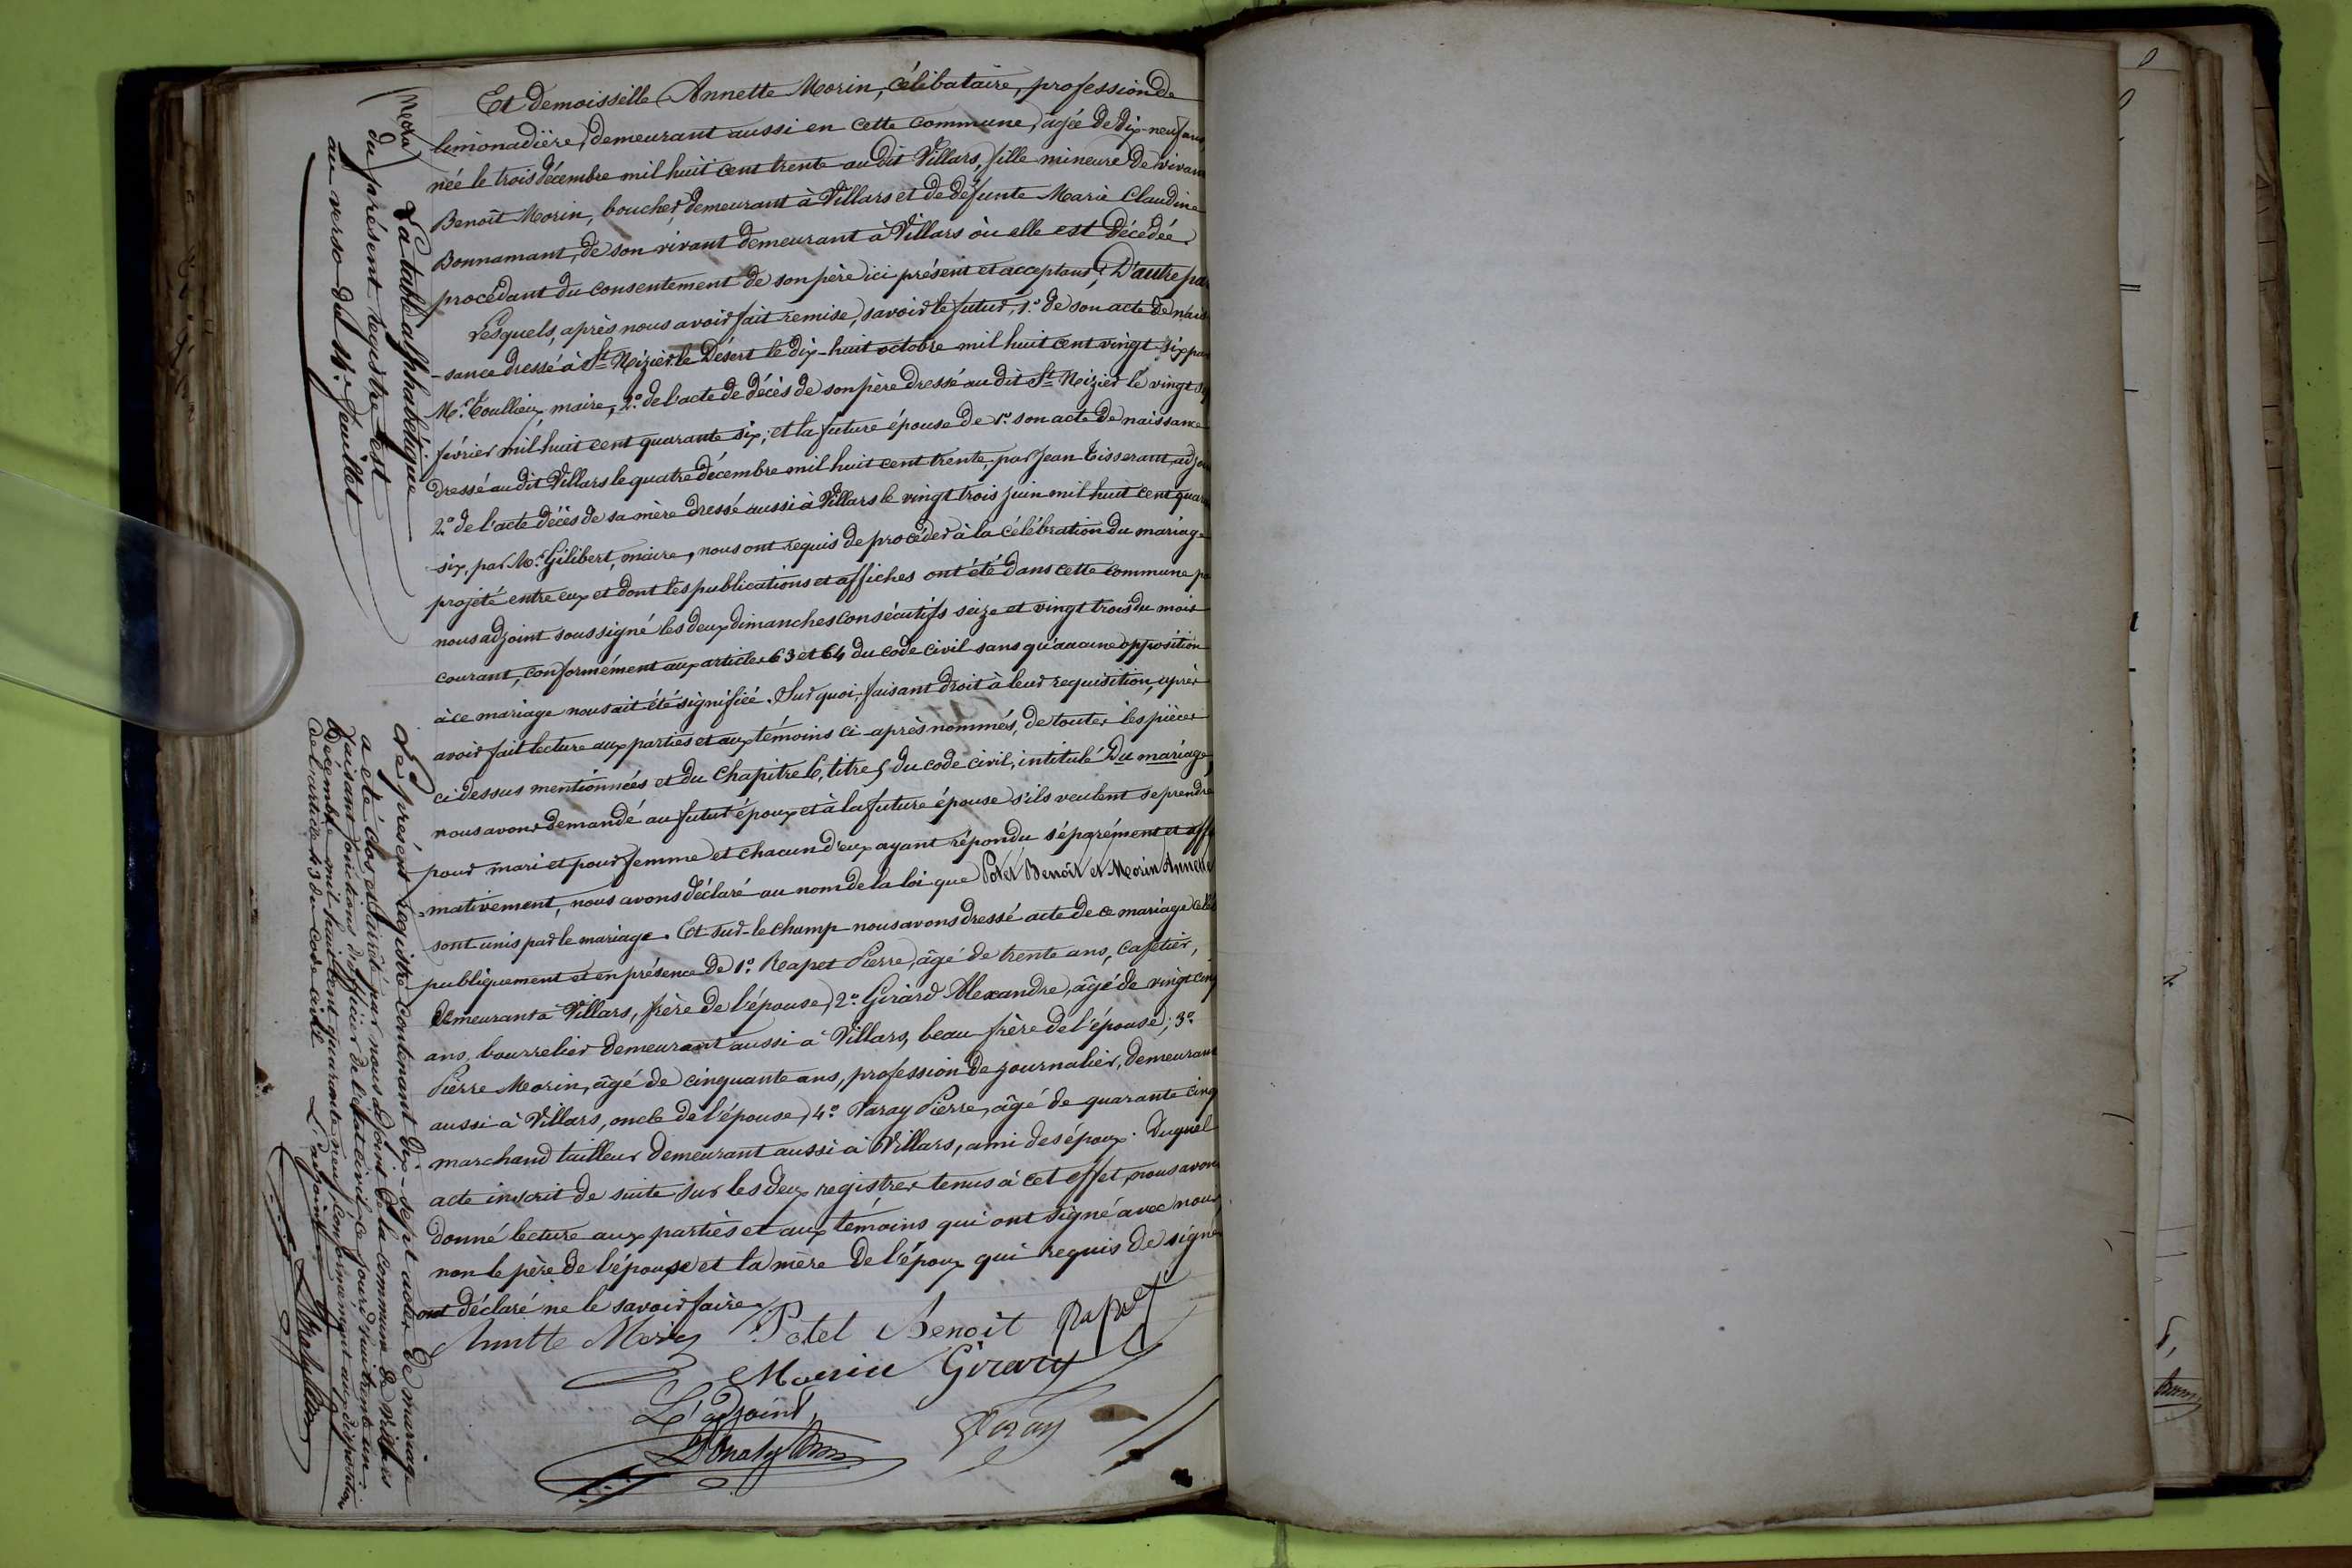 Et demoisselle Annette Morin, célibataire, profession de
limonadière, demeurant aussi en cette commune, agée de dix-neuf ans
née le trois décembre mil huit cent trente au dit Villars, fille mineure de vivant
Benoît Morin, boucher, demeurant à Villars et de défunte Marie Claudine
Bonnamant, de son vivant demeurant à Villars où elle est décédée.
procédant du consentement de son père ici présent et acceptant, D'autre par
Lesquels, après nous avoir fait remise, savoir le futur, 1° de son acte de nais
-sance dressé à St Nizier le Désert le dix-huit octobre mil huit cent vingt-six par
Mr. Coullieux maire, 2° de l'acte de décès de son père dressé au dit St Nizier le vingt
février mil huit cent quarante six; et la future épouse de 1° son acte de naissance
dressé au dit Villars le quatre décembre mil huit cent trente, par Jean Tisserant, adjoi
2° de l'acte décès de sa mère dressé aussi à Villars le vingt trois juin mil huit cent quaran
six, par Mr. Gilibert, maire, nous ont requis de procéder à la célébration du mariage
projeté entre eux et dont les publications et affiches ont été dans cette commune pa
nous adjoint soussigné les deux dimanches consécutifs seize et vingt trois du mois
courant, conformément aux articles 63 et 64 du code civil sans qu'aucune opposition
à ce mariage nous ait été signifiée. Sur quoi, faisant droit à leur requisition, après
avoir fait lecture aux parties et aux témoins ci-après nommés, de toutes les pièces
ci dessus mentionnées et du Chapitre 6, titre 5 du code civil, intitulé Du mariage,
nous avons demandé au futur époux et à la future épouse s'ils veulent se prendre
pour mari et pour femme et chacun d'eux ayant répondu séparément et affi
-mativement, nous avons déclaré au nom de la loi que Potel Benoît et Morin Annette
sont unis par le mariage. Et sur-le champ nous avons dressé acte de ce mariage célé
publiquement et en présence de 1° Reapet Pierre, âgé de trente ans, cafetier,
demeurant à Villars, frère de l'épouse, 2° Girard Alexandre, âgé de vingt cinq
ans, bourrelier demeurant aussi à Villars, beau frère de l'épouse; 3°
Pierre Morin, âgé de cinquante ans, profession de journalier, demeurant
aussi à Villars, oncle de l'épouse, 4° Varay Pierre, âgé de quarante cinq
marchand tailleur demeurant aussi à Villars, ami des époux. Duquel
acte inscrit de suite sur les deux registres tenus à cet effet, nous avons
donné lecture aux parties et aux témoins qui ont signé avec nous,
non le père de l'épouse et la mère de l'époux qui requis de signer
ont déclaré ne le savoir faire.
Annette Morin Potel Benoit Rapet
Morin Girard
L'adjoint,
Varay
Nota
La table alphabétique
du présent registre est
au verso du 14e feuillet
Le présent registre contenant dix-sept actes de mariage
a été clos et arrêté par nous adjoint de la commune de Villars
faisant fonctions d'officier de l'état civil ce jourd'hui trente un
Décembre mil huit cent quarante neuf, conformément aux dispositions
de l'article 43 du code civil
L'adjoint